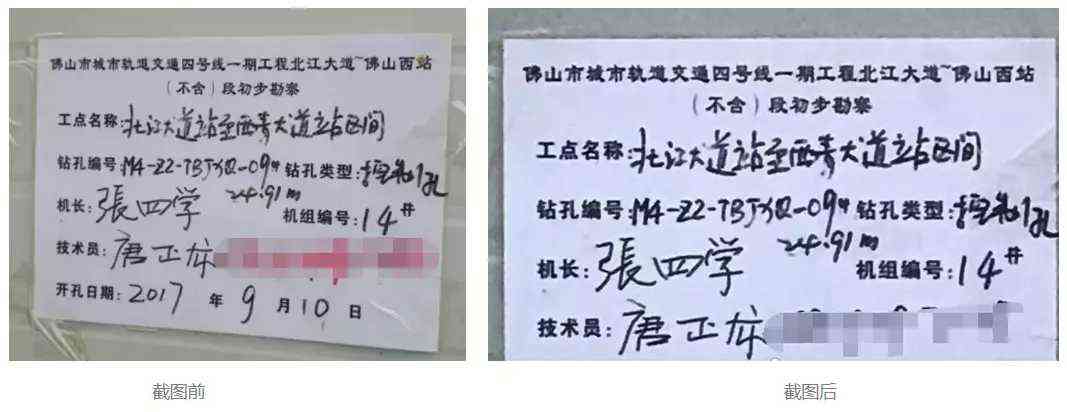 佛山市城市轨道交通四号线一期工程北江大道~佛山西站
（不含）段初步勘察
工点名称:北江大道站至西青大道立站区间
钻孔编号:M4-Z2-TBJXQ-09# 钻孔类型:控制孔
24.91m
机长:張四学 机组编号:14#
技术员:唐正龙
开孔日期:2017年9月10日
截图前
佛山市城市轨道交通四号线一期工程北江大道~佛山西站
（不含）段初步勘察
工点名称:北江大道站至西青大道立站区间
钻孔编号:M4-Z2-TBJXQ-09# 钻孔类型:控制孔
24.91m
机长:張四学 机组编号:14#
技术员:唐正龙
截图后